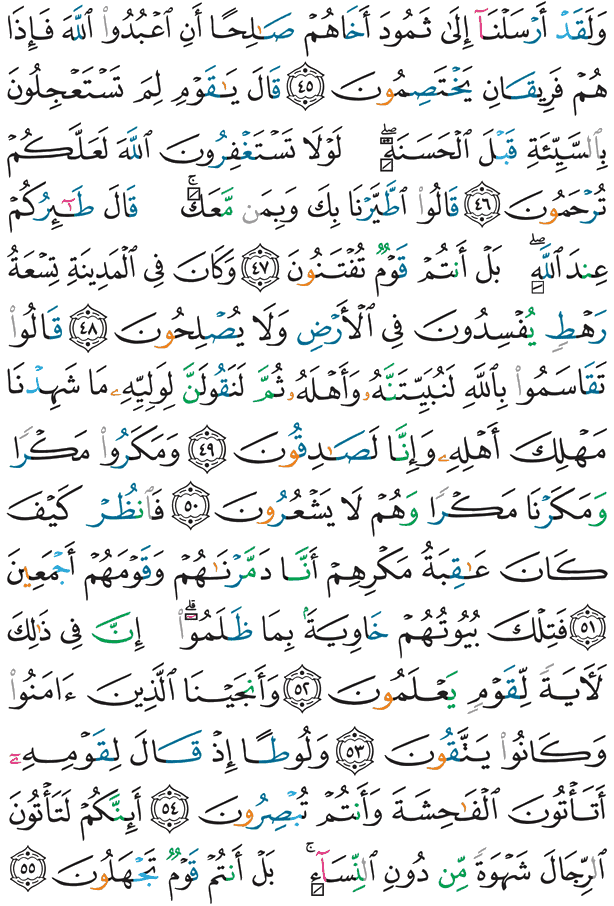 وَلَقَدْ أَرْسَلْنَآ إِلَىٰ ثَمُودَ أَخَاهُمْ صَٰلِحًا أَنِ ٱعْبُدُوا۟ ٱللَّهَ فَإِذَا
هُمْ فَرِيقَانِ يَخْتَصِمُونَ ٤٥ قَالَ يَٰقَوْمِ لِمَ تَسْتَعْجِلُونَ
بِٱلسَّيِّئَةِ قَبْلَ ٱلْحَسَنَةِ ۖ لَوْلَا تَسْتَغْفِرُونَ ٱللَّهَ لَعَلَّكُمْ
تُرْحَمُونَ ٤٦ قَالُوا۟ ٱطَّيَّرْنَا بِكَ وَبِمَن مَّعَكَ ۚ قَالَ طَٰٓئِرُكُمْ
عِندَ ٱللَّهِ ۖ بَلْ أَنتُمْ قَوْمٌ تُفْتَنُونَ ٤٧ وَكَانَ فِى ٱلْمَدِينَةِ تِسْعَةُ
رَهْطٍ يُفْسِدُونَ فِى ٱلْأَرْضِ وَلَا يُصْلِحُونَ ٤٨ قَالُوا۟
تَقَاسَمُوا۟ بِٱللَّهِ لَنُبَيِّتَنَّهُۥ وَأَهْلَهُۥ ثُمَّ لَنَقُولَنَّ لِوَلِيِّهِۦ مَا شَهِدْنَا
مَهْلِكَ أَهْلِهِۦ وَإِنَّا لَصَٰدِقُونَ ٤٩ وَمَكَرُوا۟ مَكْرًا
وَمَكَرْنَا مَكْرًا وَهُمْ لَا يَشْعُرُونَ ٥٠ فَٱنظُرْ كَيْفَ
كَانَ عَٰقِبَةُ مَكْرِهِمْ أَنَّا دَمَّرْنَٰهُمْ وَقَوْمَهُمْ أَجْمَعِينَ
٥١ فَتِلْكَ بُيُوتُهُمْ خَاوِيَةًۢ بِمَا ظَلَمُوٓا۟ ۗ إِنَّ فِى ذَٰلِكَ
لَءَايَةً لِّقَوْمٍ يَعْلَمُونَ ٥٢ وَأَنجَيْنَا ٱلَّذِينَ ءَامَنُوا۟
وَكَانُوا۟ يَتَّقُونَ ٥٣ وَلُوطًا إِذْ قَالَ لِقَوْمِهِۦٓ
أَتَأْتُونَ ٱلْفَٰحِشَةَ وَأَنتُمْ تُبْصِرُونَ ٥٤ أَئِنَّكُمْ لَتَأْتُونَ
ٱلرِّجَالَ شَهْوَةً مِّن دُونِ ٱلنِّسَآءِ ۚ بَلْ أَنتُمْ قَوْمٌ تَجْهَلُونَ ٥٥